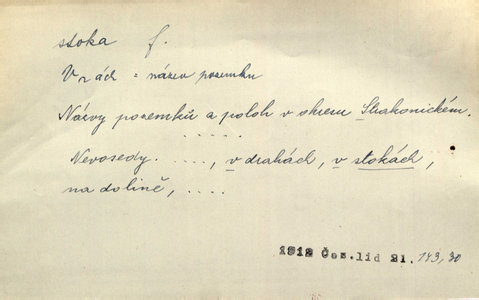 stoka f.
V zách = název pozemku
Názvy pozemků a poloh v okresu Strakonickém.
. . . . .
Nevosedy. . . . ., v drahách, v stokách,
na dolině, . . . .
1912 Čes. lid 21. 143, 30